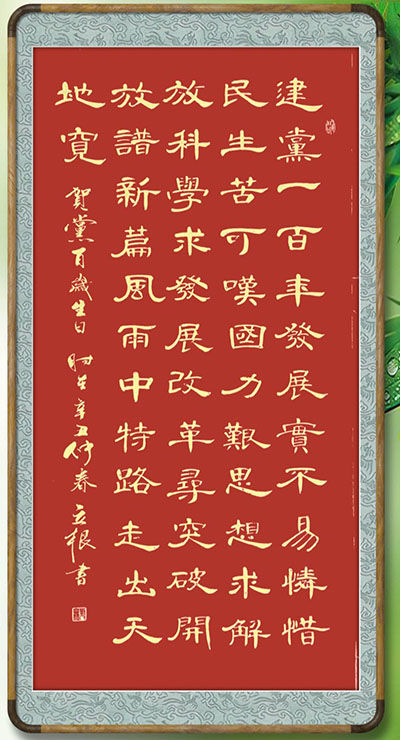 建黨一百年發展實不易憐惜
民生苦可嘆國力艱思想求解
放科學求發展改革尋突破開
放譜新篇風雨中特路走出天
地寬
賀黨百歲生日 时在辛丑仲春 立根書